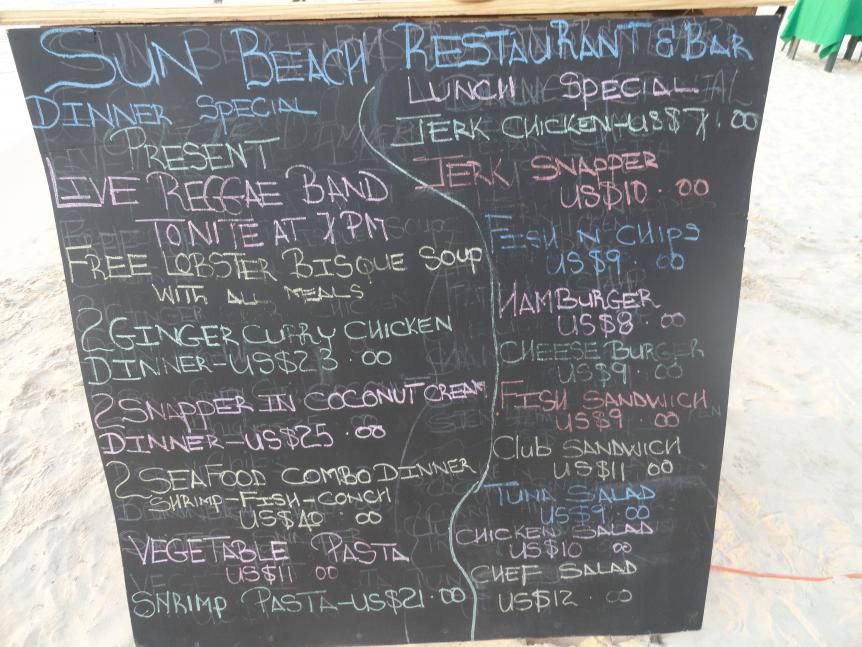 SUN BEACH RESTAURANT & BAR
DINNER SPECIAL
PRESENT
LIVE REGGAE BAND
TONITE AT 7PM
FREE LOBSTER BISQUE SOUP
WITH ALL MEALS
2 GINGER CURRY CHICKEN
DINNER-US$23.00
2 SNAPPER IN COCONUT CREAM
DINNER-US$25.00
2 SEAFOOD COMBO DINNER
SHRIMP-FISH-CONCH
US$40.00
VEGETABLE PASTA
US$11 00
SHRIMP PASTA-US$21.00
LUNCH SPECIAL
JERK CHICKEN-US$7.00
JERK SNAPPER
US$10.00
FISH N CHIPS
US$9.00
HAMBURGER
US$8.00
CHEESE BURGER
US$9.00
FISH SANDWICH
US$9.00
Club SANDWICH
US$11 00
TUNA SALAD
US$9.00
CHICKEN SALAD
US$10 00
CHEF SALAD
US$12.00